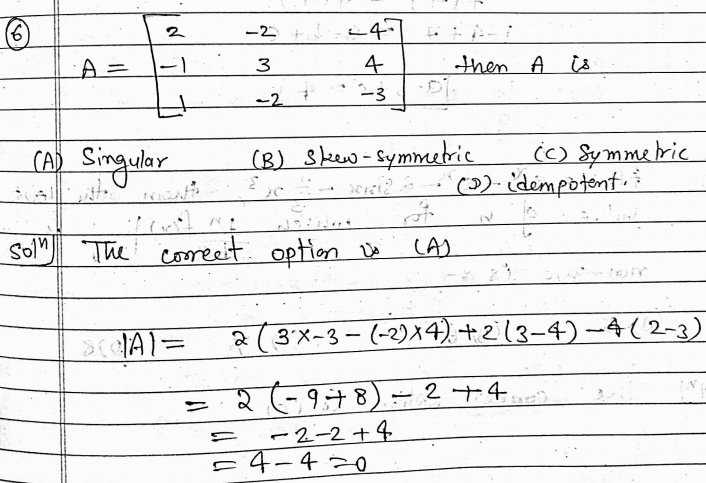 ⑥ A = [ 2 -2 -4
-1 3 4
1 -2 -3 ] then A is
(A) Singular (B) Skew-symmetric (C) Symmetric
(D) idempotent.
Solⁿ The correct option is (A)
|A| = 2 (3×-3 - (-2)×4) + 2 (3-4) - 4 (2-3)
= 2 (-9+8) - 2 + 4
= -2-2+4
= 4-4=0